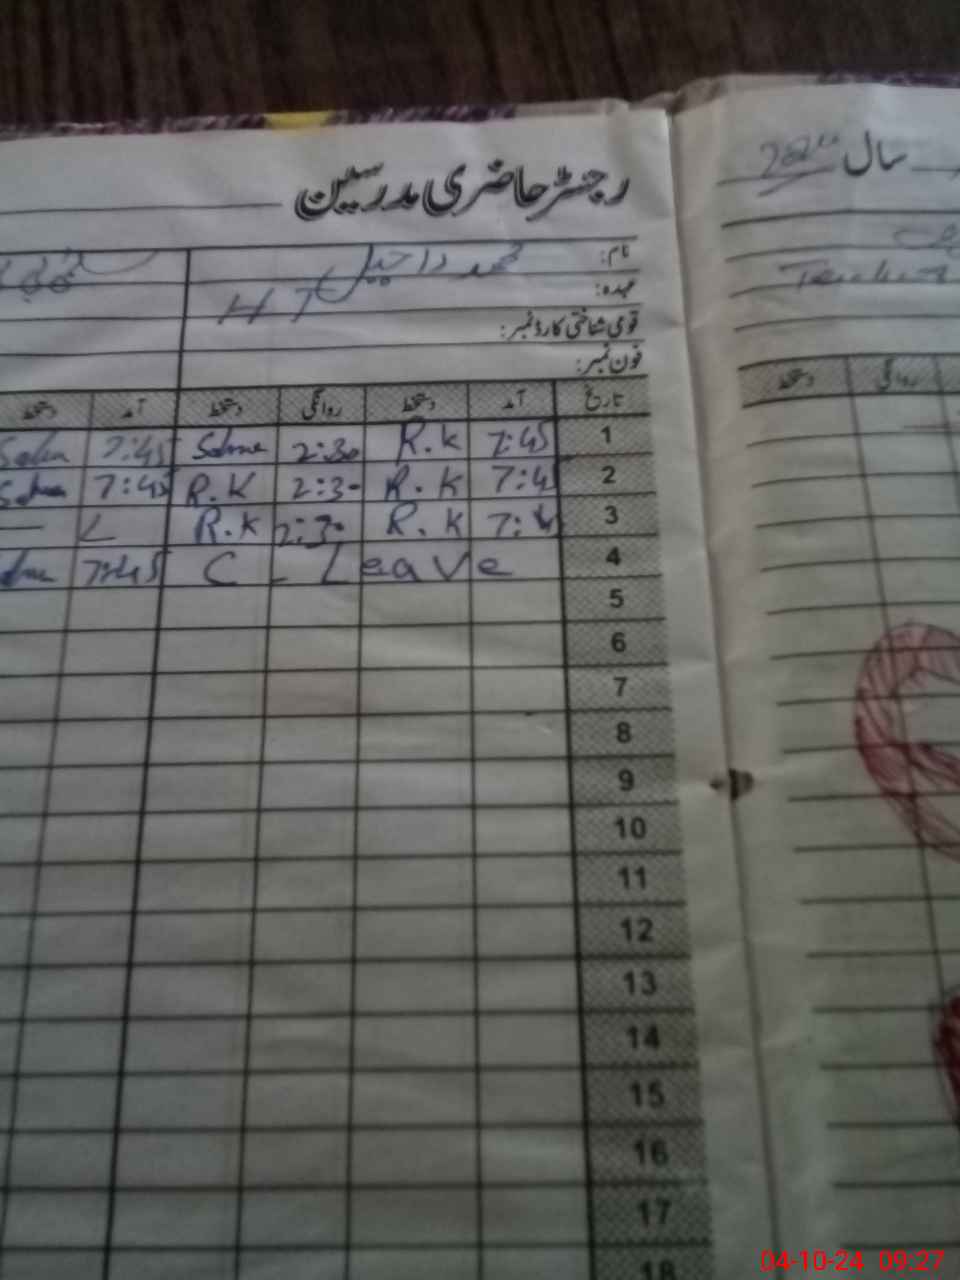 سال
رجسٹر حاضری مدرسین
نام: محمد
عہدہ: H T
قومی شناختی کارڈ نمبر:
فون نمبر:
تاریخ آمد دستخط روانگی دستخط آمد دستخط
روانگی دستخط
1 7:45 R.K 2:30 7:45
2 7:45 R.K 2:30 R.K 7:45
3 R.K 2:30 R.K L —
4 C - Leave 7:45
5
6
7
8
9
10
11
12
13
14
15
16
17
18
04-10-24 09:27